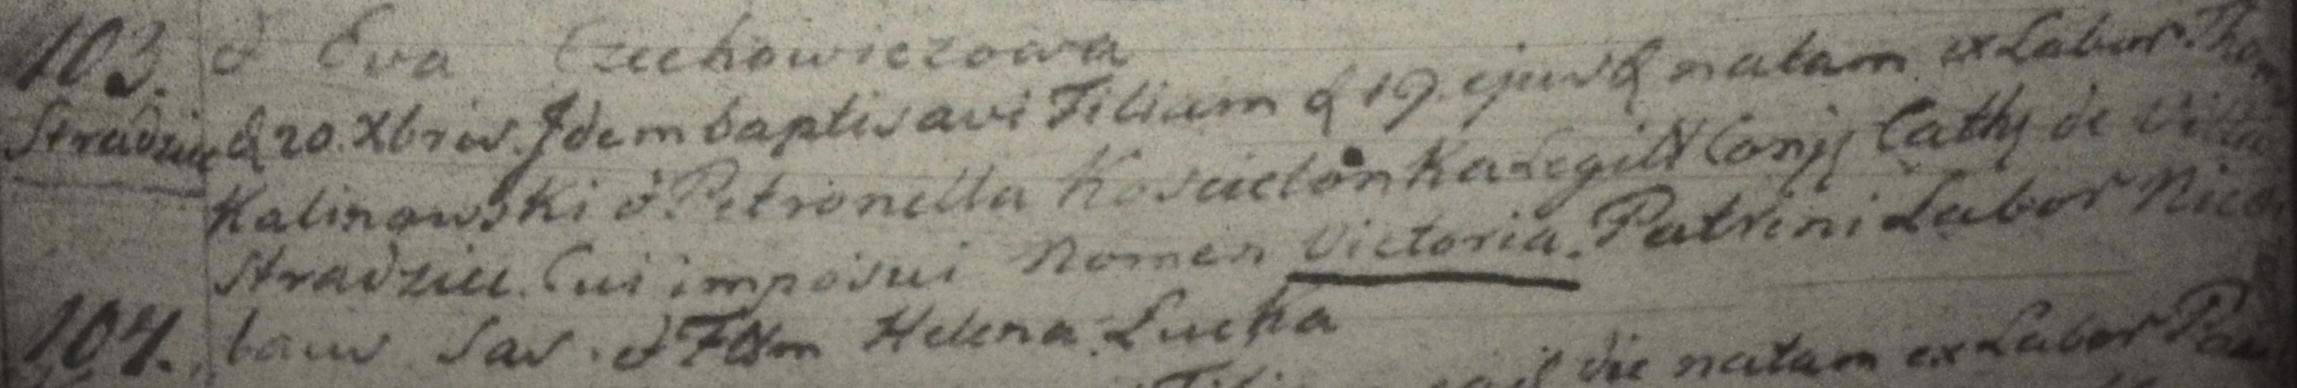 103. & Eva Czechowiczowa
Stradzie d 20. Xbris. Idem baptisavi Filiam d 19. ejusd natam ex Labor. Thom
Kalinowski & Petronella Kościelonka Legitt Conj Cath de Villa
Stradzie. Cui imposui Nomen Victoria. Patrini Labor Nico
104. laus Sas. & Helena Lucka
die natam ex Labor